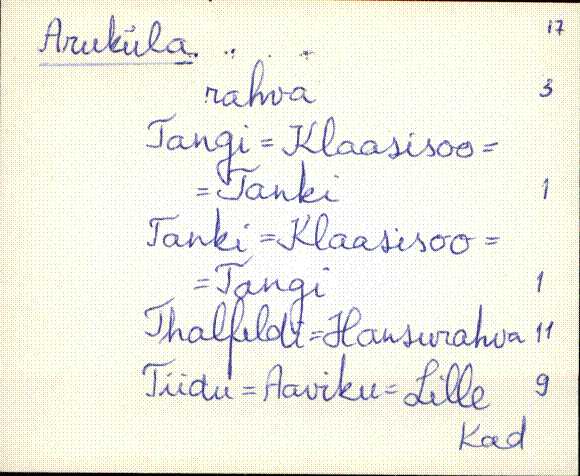 Aruküla 17
rahva 3
Tangi = Klaasisoo =
= Tanki 1
Tanki = Klaasisoo =
= Tangi 1
Thalfeldi = Hansurahva 11
Tiidu = Aaviku = Lille 9
Kad